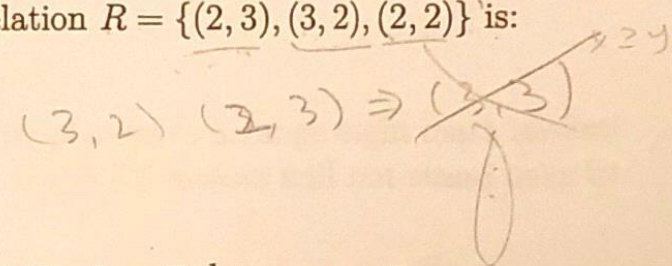 lation R = {(2, 3), (3, 2), (2, 2)} is:
(3, 2) (2, 3) ⇒ (3, 3)